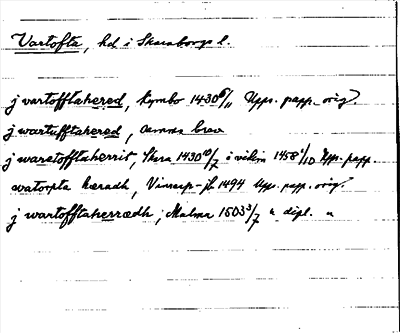 Vartofta, hd i Skaraborgs l.
j vartofftahered, Kymbo 1430 6/11 Upps. papp. orig.
j wartufftahered, samma brev
j waretofftaherrit, Skara 1430 10/7 i vidim 1458 1/10 Upps. papp.
watorpta hæradh, 1494 Upps. papp. orig.
j wartofftaherrædh, Malma 1503 3/7 " dipl. "